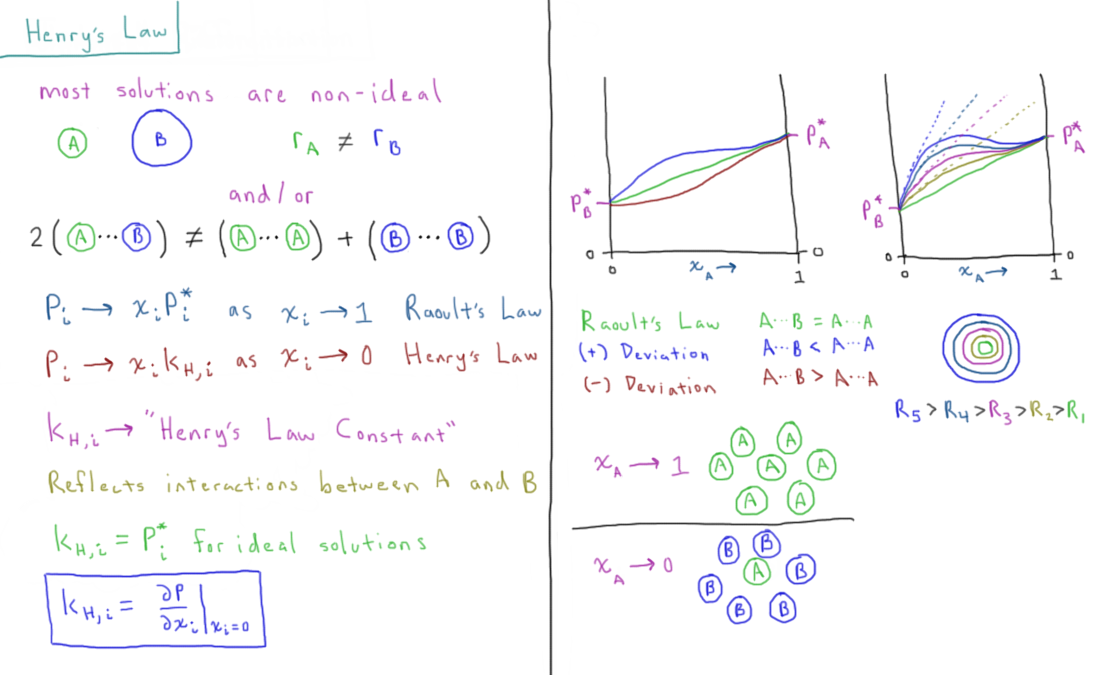 Henry's Law
most solutions are non-ideal
A B r_A ≠ r_B
and/or
2(A···B) ≠ (A···A) + (B···B)
P_i → x_i P_i^* as x_i → 1 Raoult's Law
P_i → x_i k_H,i as x_i → 0 Henry's Law
k_H,i → "Henry's Law Constant"
Reflects interactions between A and B
k_H,i = P_i^* for ideal solutions
k_H,i = ∂P/∂x_i |x_i=0
P_A^*
P_B^*
0 0
0 x_A → 1
P_A^*
P_B^*
0 0
0 x_A → 1
Raoult's Law A···B = A···A
(+) Deviation A···B < A···A
(-) Deviation A···B > A···A
R_5 > R_4 > R_3 > R_2 > R_1
x_A → 1
A A
A A A
A A
x_A → 0
B B
A B
B
B B